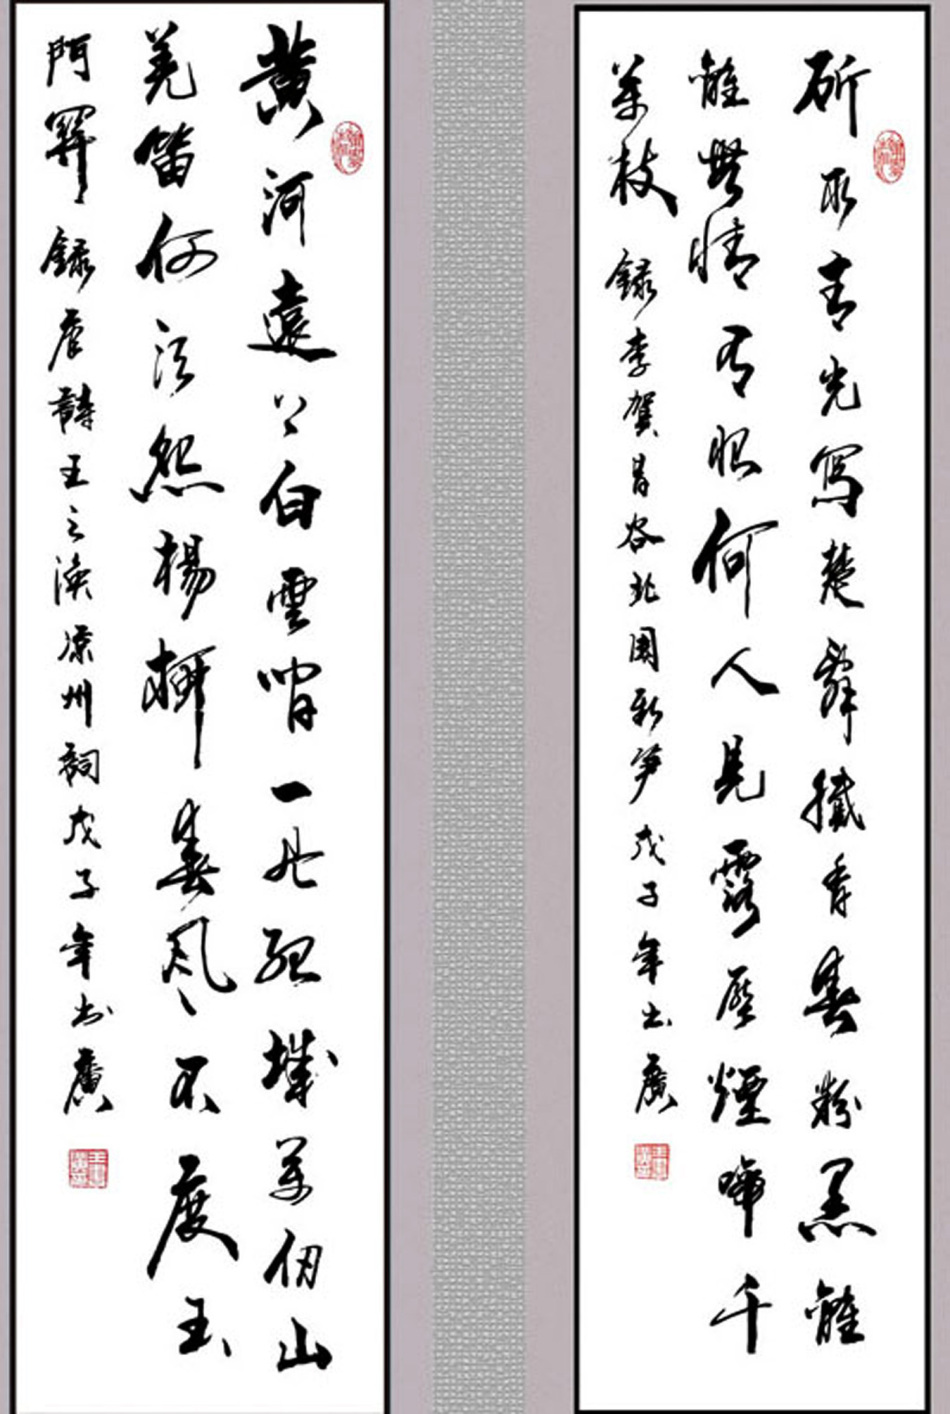 斫取青光寫楚辭膩香春粉黑離
離無情有恨何人見露壓煙啼千
萬枝 錄李賀昌谷北園新筍 戊子年書廣
黃河遠上白雲間一片孤城萬仞山
羌笛何須怨楊柳春風不度玉
門關 錄唐詩王之渙凉州詞戊子年書廣